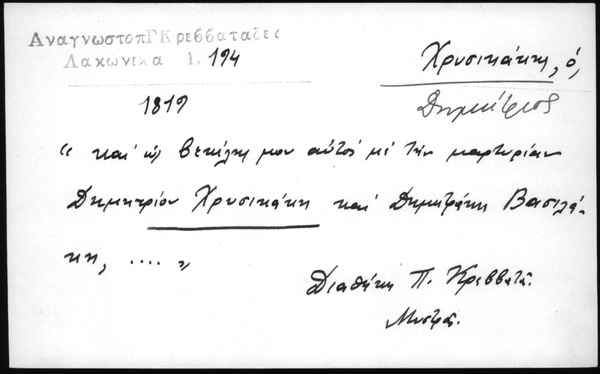 ΑναγνωστοπΓΚρεββαταδες
Λακωνικα 1, 194
Χρυσικάκη, ὁ,
Δημήτριος
1819
"καί ὡς βεκίλης μου αὐτός μέ τήν μαρτυρίαν
Δημητρίου Χρυσικάκη καί Δημητράκη Βασιλά-
κη, .... "
Διαθήκη Π. Κρεββατᾶ.
Μυστρᾶς.